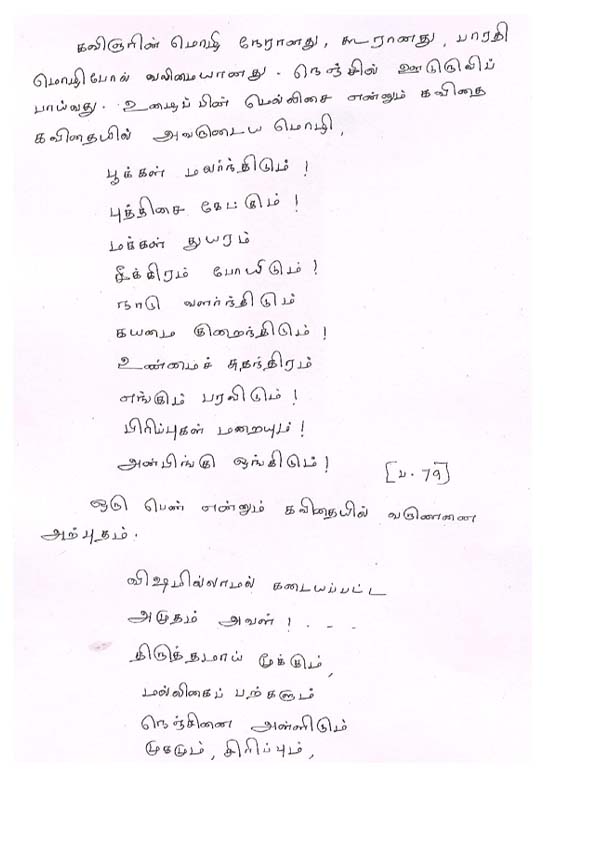 கவிஞரின் மொழி நேரானது, கூரானது, பாரதி
மொழிபோல் வலிமையானது. நெஞ்சில் ஊடுருவிப்
பாய்வது. உழைப்பின் மெல்லிசை என்னும் கவிதை
கவிதையில் அவருடைய மொழி,
பூக்கள் மலர்ந்திடும் !
புத்திசை கேட்கும் !
மக்கள் துயரம்
சீக்கிரம் போயிடும் !
நாடு வளர்ந்திடும்
கயமை குறைந்திடும் !
உண்மைச் சுதந்திரம்
எங்கும் பரவிடும் !
பிரிப்புகள் மறையும் !
அன்பிங்கு ஓங்கிடும் !
[ப. 79]
ஒரு பெண் என்னும் கவிதையில் வருணனை
அற்புதம்.
விஷமில்லாமல் கடையப்பட்ட
அமுதம் அவள் ! . - -
திருத்தமாய் மூக்கும்,
மல்லிகைப் பற்களும்
நெஞ்சினை அள்ளிடும்
முகமும், சிரிப்பும்,